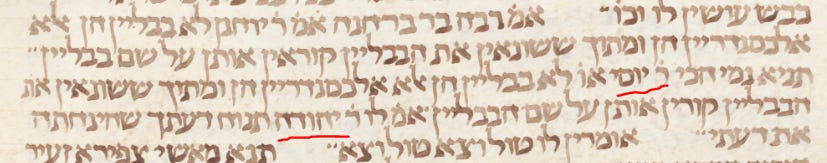 כבש עושין לו וכו' אמ' רבה בר ברחנה אמ' ר' יוחנן לא בבליין הן אלא
אלכסנדריין הן ומתוך ששונאין את הבבליין קוראין אותן על שם בבליין
תניא נמי הכי ר' יוסי או' לא בבליין הן אלא אלכסנדריין הן ומתוך ששונאין את
הבבליין קורין אותן על שם הבבליין אמ' לו ר' יהודה תנוח דעתך שהינחתה
את דעתי אומרין לו טול וצא טול וצא תנא מאשי צפירא זעיר